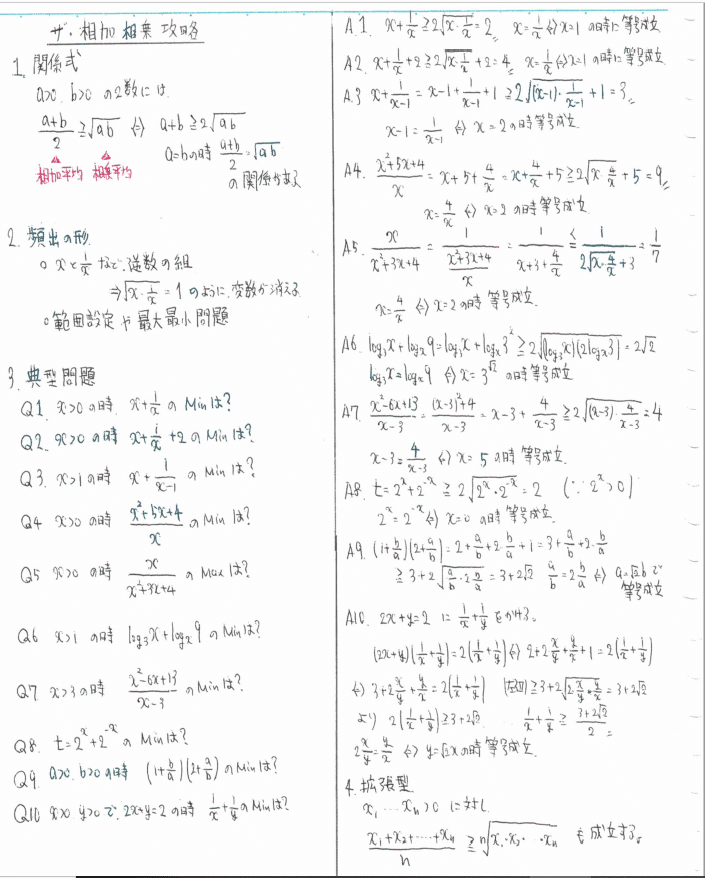 ザ・相加相乗攻略
1. 関係式
a>0. b>0 の2数には
(a+b)/2 ≧ √ab ⇔ a+b ≧ 2√ab
a=bの時 (a+b)/2 = √ab
相加平均 相乗平均
の関係がある
2. 頻出の形
○ xと1/x など、逆数の組
⇒ √(x・1/x) = 1 のように、変数が消える
○ 範囲設定や最大最小問題
3. 典型問題
Q1 x>0 の時 x+1/x の Minは?
Q2. x>0 の時 x+1/x+2 の Minは?
Q3. x>1 の時 x+1/(x-1) の Minは?
Q4 x>0 の時 (x²+5x+4)/x の Minは?
Q5 x>0 の時 x/(x²+3x+4) の Maxは?
Q6 x>1 の時 log₃x+logₓ9 の Minは?
Q7 x>3 の時 (x²-6x+13)/(x-3) の Minは?
Q8. t=2^x+2^-x の Minは?
Q9. a>0. b>0 の時 (1+b/a)(2+a/b) の Minは?
Q10 x>0 y>0 で、2x+y=2 の時 1/x+1/y の Minは?
A1. x+1/x ≧ 2√(x・1/x) = 2 x=1/x ⇔ x=1 の時に等号成立
A2. x+1/x+2 ≧ 2√(x・1/x)+2=4 x=1/x ⇔ x=1 の時に等号成立.
A.3 x+1/(x-1) = x-1+1/(x-1)+1 ≧ 2√((x-1)・1/(x-1))+1=3
x-1=1/(x-1) ⇔ x=2 の時等号成立.
A4. (x²+5x+4)/x = x+5+4/x = x+4/x+5 ≧ 2√(x・4/x)+5=9
x=4/x ⇔ x=2 の時等号成立.
A5. x/(x²+3x+4) = 1/((x²+3x+4)/x) = 1/(x+3+4/x) ≦ 1/(2√(x・4/x)+3) = 1/7
x=4/x ⇔ x=2 の時 等号成立.
A6. log₃x+logₓ9=log₃x+logₓ3² ≧ 2√((log₃x)(2logₓ3)) = 2√2
log₃x=logₓ9 ⇔ x=3^√2 の時等号成立
A7. (x²-6x+13)/(x-3) = ((x-3)²+4)/(x-3) = x-3+4/(x-3) ≧ 2√((x-3)・4/(x-3)) = 4
x-3=4/(x-3) ⇔ x=5 の時 等号成立.
A8. t=2^x+2^-x ≧ 2√(2^x・2^-x) = 2 (∵ 2^x>0)
2^x=2^-x ⇔ x=0 の時 等号成立.
A9. (1+b/a)(2+a/b)=2+a/b+2・b/a+1=3+a/b+2・b/a
≧ 3+2√(a/b・2b/a) = 3+2√2 a/b=2b/a ⇔ a=√2b で
等号成立
A10. 2x+y=2 に 1/x+1/y をかける。
(2x+y)(1/x+1/y)=2(1/x+1/y) ⇔ 2+2x/y+y/x+1=2(1/x+1/y)
⇔ 3+2x/y+y/x=2(1/x+1/y) (左辺) ≧ 3+2√(2x/y・y/x) = 3+2√2
より 2(1/x+1/y) ≧ 3+2√2 ∴ 1/x+1/y ≧ (3+2√2)/2
2x/y=y/x ⇔ y=√2x の時等号成立.
4. 拡張型
x₁ … xₙ>0 に対し
(x₁+x₂+……+xₙ)/n ≧ ⁿ√(x₁・x₂・…・xₙ) も成立する。